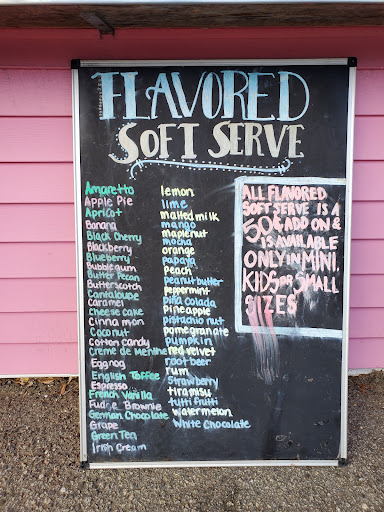 FLAVORED
SOFT SERVE
Amaretto
Apple Pie
Apricot
Banana
Black Cherry
Blackberry
Blueberry
Bubblegum
Butter Pecan
Butterscotch
Cantaloupe
Caramel
Cheese cake
Cinnamon
Coconut
Cotton candy
Creme de Menthe
Eggnog
English Toffee
Espresso
French Vanilla
Fudge Brownie
German Chocolate
Grape
Green Tea
Irish Cream
lemon
lime
malted milk
mango
maplenut
mocha
orange
papaya
peach
peanut butter
peppermint
piña colada
Pineapple
pistachio nut
pomegranate
pumpkin
red velvet
root beer
rum
Strawberry
tiramisu
tutti frutti
watermelon
White Chocolate
ALL FLAVORED
SOFT SERVE IS A
50¢ ADD ON &
IS AVAILABLE
ONLY IN MINI,
KIDS OR SMALL
SIZES